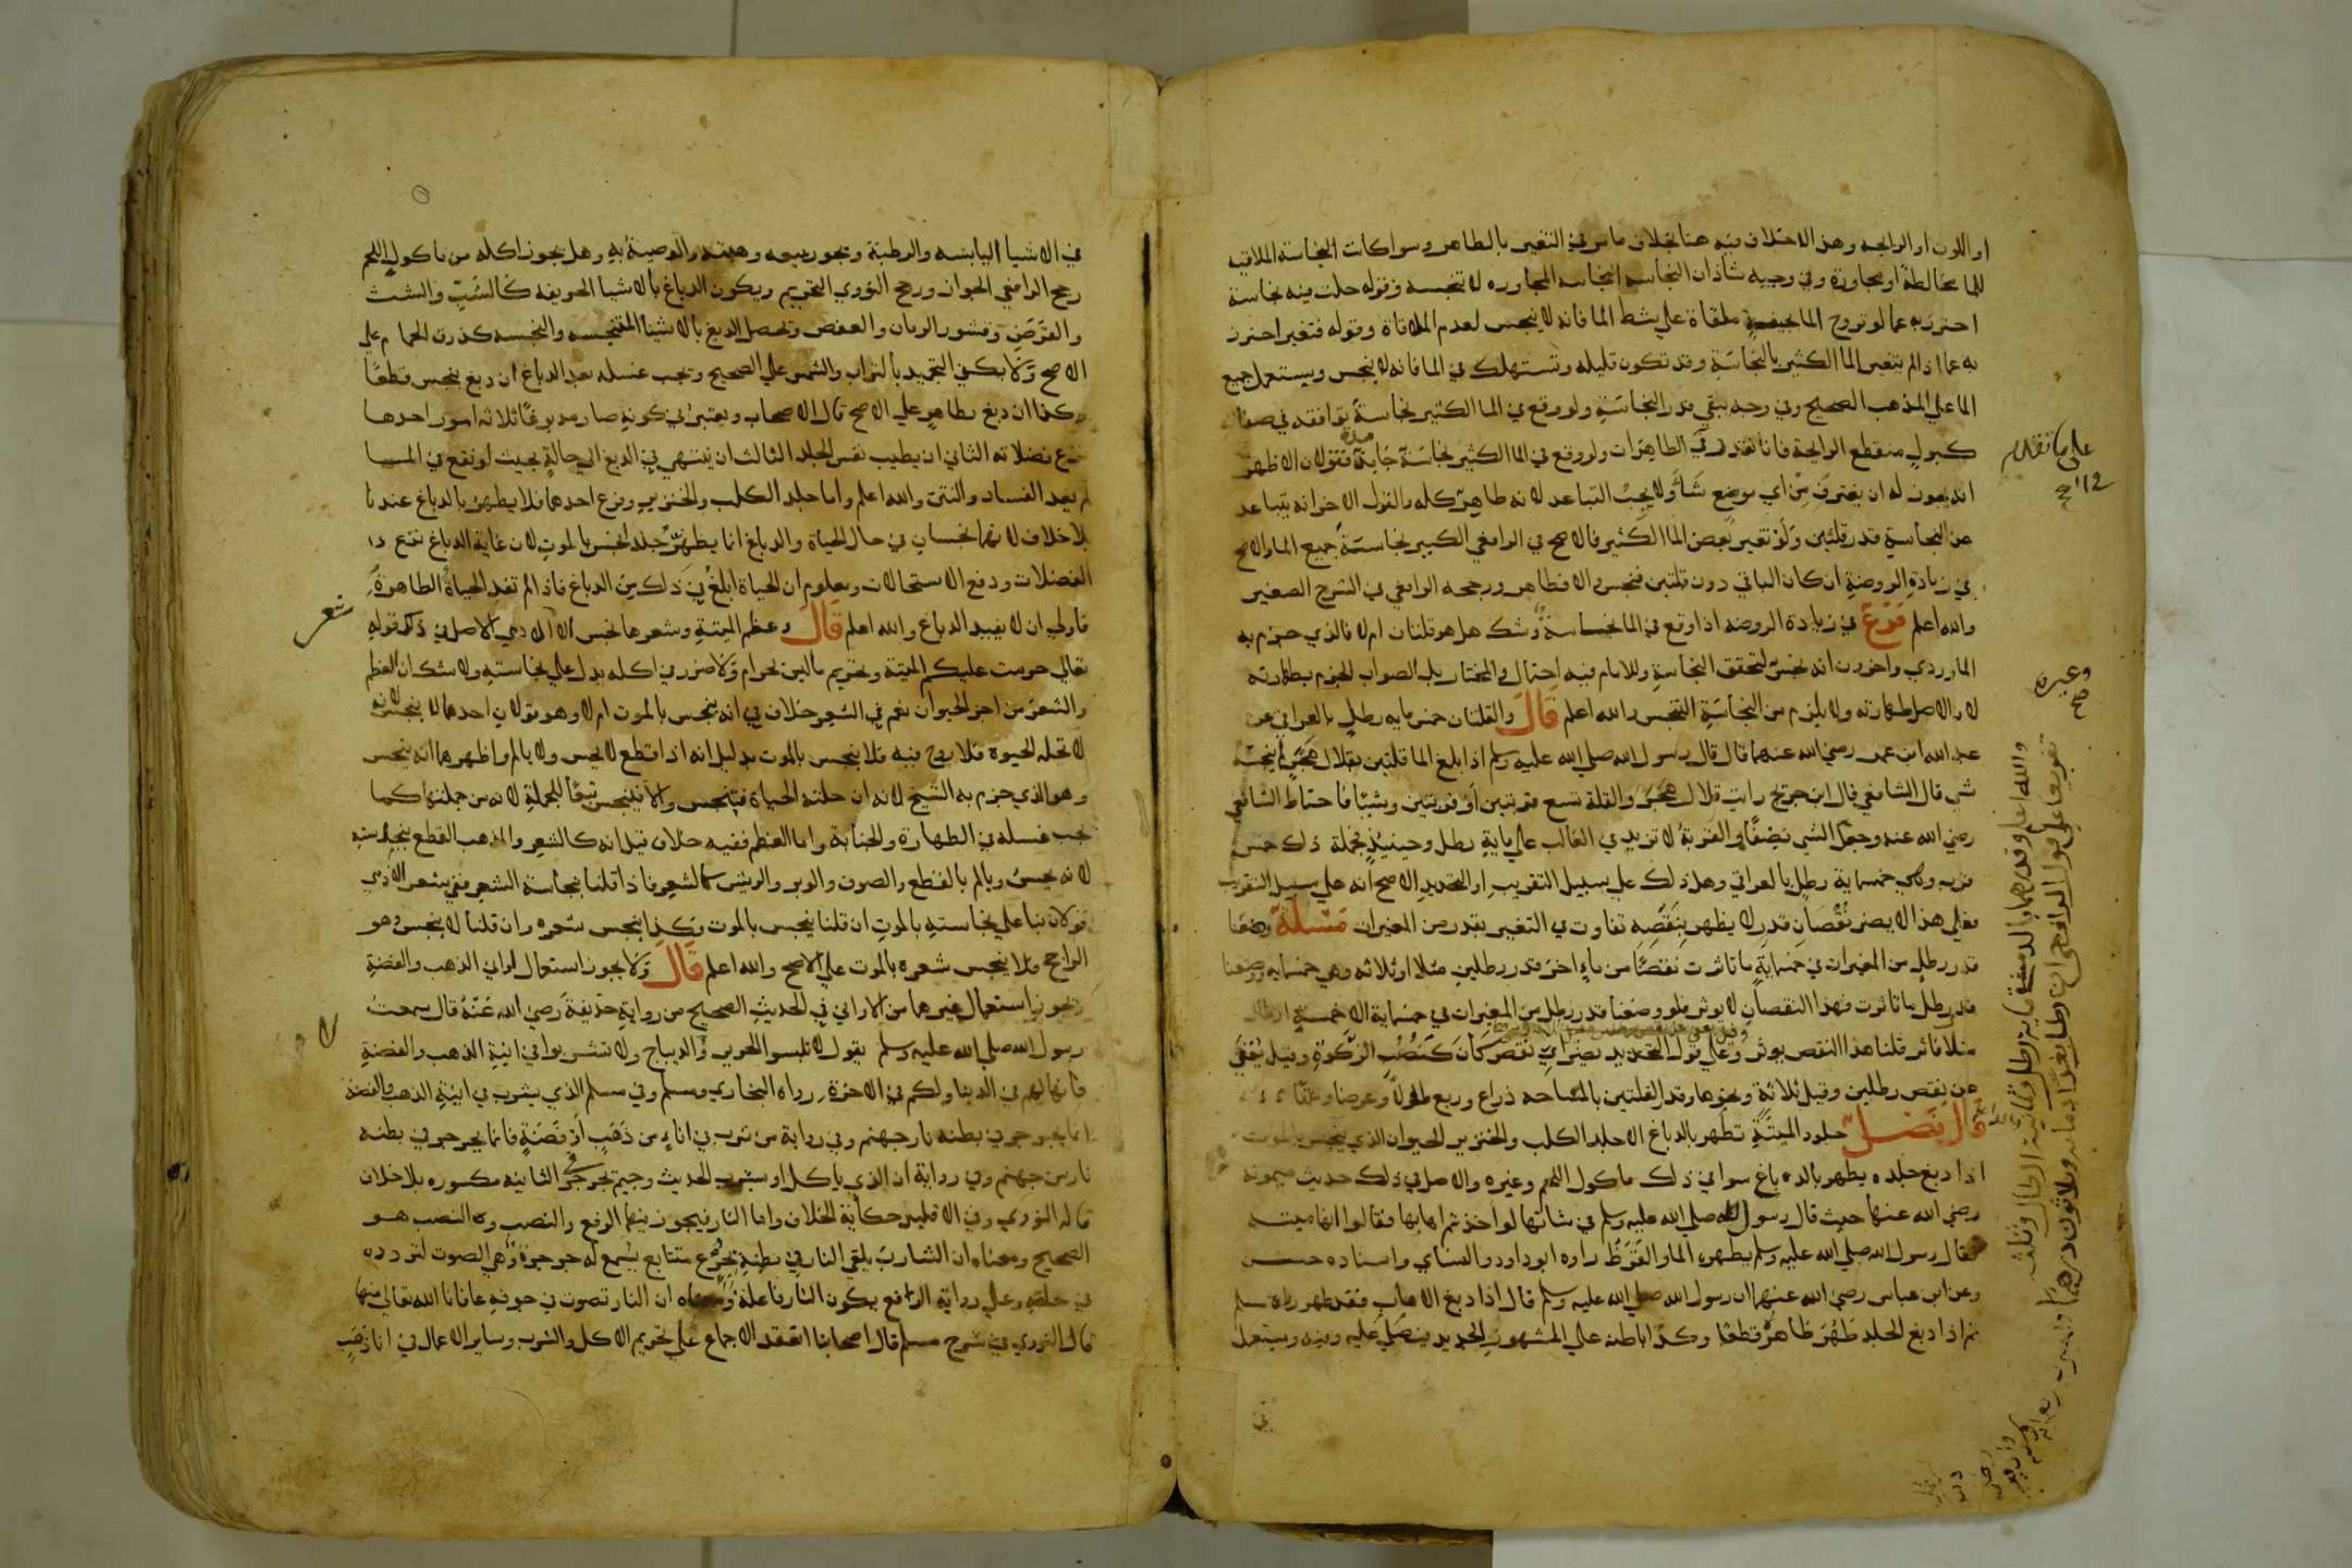 او اللون او الرايحه وهذا الاختلاف فيه هنا بخلاف ما مر في التغير بالطاهر وسوا كانت النجاسة الملاقيه
للما مخالطة او مجاورة وفي وجه شاذ ان النجاسه المجاوره لا تنجسه وقوله حلت فيه نجاسة
احترز به عما لو تروح الما بجيفة ملقاة علي شط الما فانه لا ينجس لعدم الملاقاة وقوله فتغير احترز
به عما اذا لم يتغير الما الكثير بالنجاسَةِ وقد تكون قليله وتستهلك في الما فانه لا ينجس ويستعمل جميع
الما علي المذهب الصحيح وفي وجه يبقي قدر النجاسَةِ ولو وقع في الما الكثير نجاسة توافقه في صفاته
كبولٍ منقطع الرايحة فانا نقدر في الطاهرات ولو وقع في الما الكثير نجاسَة جامدة فقولان الاظهر
انه يجوز له ان يغترفَ مِنْ اي موضع شَآ ولا يجبُ التباعد لانه طاهر كله والقول الاخر انه يتباعد
عن النجاسةِ قدر قلتين وَلَوْ تغير بعض الما الكثير فالاصح في الرافعي الكبير نجاسة جميع الما والاصح
في زيادةِ الروضةِ ان كان الباقي دون قلتين فنجس والا فطاهر ورجحه الرافعي في الشرح الصغير
والله اعلم فَرْعٌ في زيادة الروضه اذا وقع في الما نجاسة وشك هل هو قلتان ام لا فالذي جزم به
الماوردي واخرون انه نجسٌ لتحقق النجاسةِ وللامام فيه احتمال والمختار بل الصواب الجزم بطهارته
لان الاصل طهارته ولا يلزم من النجاسَةِ التنجس والله اعلم قَالَ والقلتان خمس مايه رطلٍ بالعراقي عن
عبد الله ابن عمر رضي الله عنهما قال قال رسول الله صلي الله عليه وسلم اذا بلغ الما قلتين بقلال هَجَرٍ لم ينجسْه
شي قال الشافعي قال ابن جريج رايت قلال هَجَرَ والقلة تسع قربتين اَوْ قربتين وشيئًا فاحتاط الشافعي
رضي الله عنه وجعل الشي نصفًا والقربةُ لا تزيد في الغالب علي مايةِ رطل وحينيذٍ فجملة ذلك خمس
قرب وهي خمسماية رطلٍ بالعراقي وهل ذلك علي سبيل التقريبِ او التحديدِ الاصح انه علي سبيل التقريب
فعلي هذا لا يضر نُقْصَان قدرٍ لا يظهر بِنَقصِه تفاوت في التغير بقدر من المغيرات مَسْئَلَة وضعنا
قدر رطلٍ من المغيرات في خمسمايةٍ ما تاثرت نقصنا من ماءٍ اخر قدر رطلينِ مثلا او ثلاثه وهي خمسمايه ووضعنا
قدر رطل ما تاثرت فهذا النقصان لا يوثر فلو وضعنا قدر رطل من المغيرات في خمسماية الا خمسةِ ارطال
مثلا فاثر قلنا هذا النقص يوثر وعلي قول التحديد يضر ايِّ نقص كَانَ كَنُصُبِ الزكوةِ وقيل يُعْفَي
عن نقص رطلين وقيل ثلاثة ونحوها وقدر القلتين بالمساحه ذراع وربع طولًا وعرضا وعمقًا
قَالَ فَصْــل جلود الميتَةِ تطهر بالدباغ الا جلد الكلب والخنزير الحيوان الذي ينجس بالموت
اذا دبغ جلده يطهر بالدباغ سوا في ذلك ماكول اللحم وغيره والاصل في ذلك حديث ميمونه
رضي الله عنها حيث قال رسول الله صلي الله عليه وسلم في شاتها لو اخذتم اهابها فقالوا انها ميتــه
فقال رسول الله صلي الله عليه وسلم يطهره الما والقَرَظُ رواه ابو داود والنساي واسناده حســن
وعن ابن عباس رضي الله عنهما ان رسول الله صلي الله عليه وسلم قال اذا دبغ الاهاب فقد طهر رواه مسلم
ثم اذا دبغ الجلد طَهُرَ ظاهرُه قطعًا وكذا باطنه علي المشهورِ الجديد فيصلَّي عليه وفيه ويستعمل
في
علي ما تقدم
صح
وغيره
صح
تفريعا علي قول الرافعي ان رطل بغداد مايه وثلاثون درهمًا
في الاشيا اليابسَه والرطبَة ويجوز بيعه وهبته والوصيةُ به وهل يجوز اكله من ماكول اللحم
رجح الرافعي الجواز ورجح النووي التحريم ويكون الدباغ بالاشيا الحريفه كَالشَبِّ والشث
والقرَظِ وقشور الرمان والعفص ويحصل الدبغ بالاشيا المتنجسه والنجسه كذرق الحمام علي
الاصح وَلَا يكفي التجميد بالتراب والشمس علي الصحيح ويجب غسله بعد الدباغ ان دبغ بنجس قطعًا
وكذا ان دبغ بطاهرٍ علي الاصح قال الاصحاب ويعتبر في كونهِ صار مدبوغًا ثلاثه امور احدها
نزع فضلاته الثاني ان يطيب نفس الجلد الثالث ان ينتهي في الدبغ الي حالةٍ بحيث لو نقع في المـــا
لم يعد الفساد والنتن والله اعلم واما جلد الكلب والخنزير وفرع احدهما فلا يطهر بالدباغ عندنا
بلا خلاف لانهما نجسانِ في حال الحياة والدباغ انما يطهِّرُ جلد نجس بالموتِ لان غاية الدباغ نزع
الفضلات ودفع الاستحالات ومعلوم ان الحياة ابلغُ في ذلك من الدباغ فاذا لم تفد الحياة الطاهرةُ
فاولي ان لا يفيد الدباغ والله اعلم قَالَ وعظم الميتةِ وشعرها نجس الا الادمي الاصل في ذلك قوله
تعالي حرمت عليكم الميتة وتحريم ما ليس بحرام وَلَا ضرر في اكله يدل علي نجاستهِ ولا شك ان العظم
والشعرَ من اجزا الحيوان نعم في الشعر خلاف في انه ينجس بالموت ام لا وهو قولانِ احدهما لا ينجس لانه
لا تحله الحيوة فلا روح فيه فلا ينجس بالموت بدليل انه اذا قطع لا يحس ولا يالم واظهرهما انه ينجس
وهو الذي جزم به الشيخ لانه ان حلته الحياة فينجس والا فينجس تبعًا للجملةِ لانه من جملتها كمـا
يجب غسله في الطهارة والجنابة واما العظم ففيه خلاف قيل انه كالشعر والمذهب القطع بنجاسته
لانه يحس ويالم بالقطع والصوف والوبر والريش كالشعر فاذا قلنا بنجاسة الشعر ففي شعر الادمي
قولان بنا علي نجاستهِ بالموتِ ان قلنا ينجس بالموت فكذا ينجس شعره وان قلنا لا ينجس وهو
الراجح فلا ينجس شعره بالموت علي الاصح والله اعلم قَالَ وَلَا يجوز استعمال اواني الذهب والفضةِ
ويجوز استعمال غيرهما من الاواني في الحديثِ الصحيح من روايةِ حذيفةَ رَضي الله عَنْهُ قال سمعتُ
رسول الله صلي الله عليه وسلم يقول لا تلبسوا الحرير ولا الديباج ولا تشربوا في انيةِ الذهب والفضةِ
فانها لهم في الدنيا ولكم في الاخرة رواه البخاري ومسلم وفي مسلم الذي يشرب في انيةِ الذهب والفضة
انما يجرجر في بطنه نار جهنم وفي رواية من شرب في اناءٍ من ذَهَبٍ او فضَةٍ فانما يجرجر في بطنه
نارا من جهنم وفي رواية ان الذي ياكل او يشرب الحديث وجيم يجرجر الثانيه مكسوره بلا خلاف
قاله النووي وفي الاقليد حكاية الخلاف واما النار فيجوز فيها الرفع والنصب والنصب هــو
الصحيح ومعناه ان الشاربَ يلقي النار في بطنهِ بجرع متتابع يسمع له جرجرة وهي الصوت لتردده
في حلقهِ وعلي رواية الرفع يكون النار فاعلة ومعناه ان النار تصوت في جوفهِ عافانا الله تعالي منها
قال النووي في شرح مسلم قال اصحابنا انعقد الاجماع علي تحريم الاكل والشرب وساير الاعمال في انا ذهَبٍ
شعر